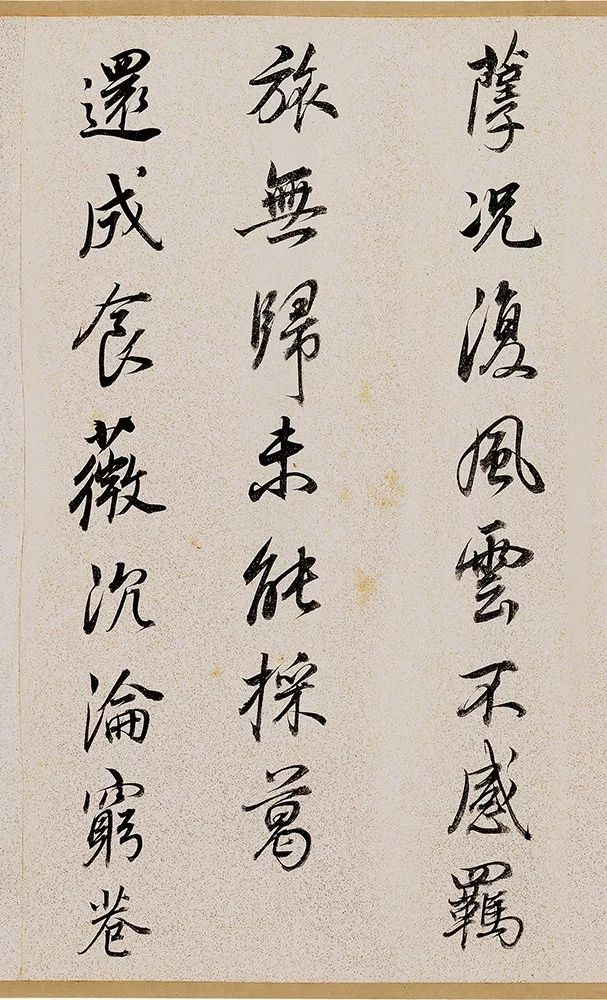 孽況復風雲不感羈
旅無歸未能採葛
還成食薇沉淪窮巷